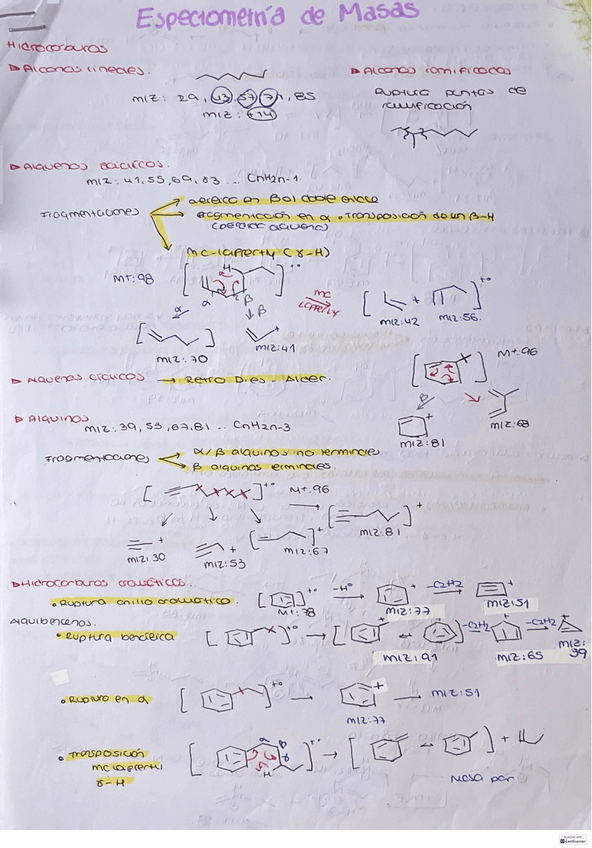 Espectometría de Masas
Hidrocarburos
▸Alcanos lineales.
m/z: 29, 43, 57, 71, 85
m/z: +14
▸Alcanos ramificados
Ruptura puntos de
ramificación
▸Alquenos acíclicos.
m/z: 41, 55, 69, 83 ... CnH2n-1
Fragmentaciones
fragmentación en α • Transposición de un β-H
Mc-lafferty (γ-H)
M+: 98
H
α
β
α
β
MC
Lafferty
+
m/z: 42
m/z: 56.
m/z: 70
m/z: 41
▸Alquenos cíclicos → Retro Diels-Alder.
M+: 96
m/z: 81
m/z: 68
▸Alquinos
m/z: 39, 53, 67, 81 .. CnH2n-3
Fragmentaciones
α/β alquinos no terminales
β alquinos terminales.
M+: 96
m/z: 30
m/z: 53
m/z: 67
m/z: 81
▸Hidrocarburos aromáticos.
• Ruptura anillo aromático.
M+: 78
-H°
m/z: 77
-C2H2
m/z: 51
Alquibencenos.
• Ruptura bencílica
m/z: 91
-C2H2
m/z: 65
-C2H2
m/z: 39
• Ruptura en α
m/z: 77
m/z: 51
• Transposición
mc lafferti
γ-H
α
β
γ
H
+
Masa par
Scanned with
CamScanner